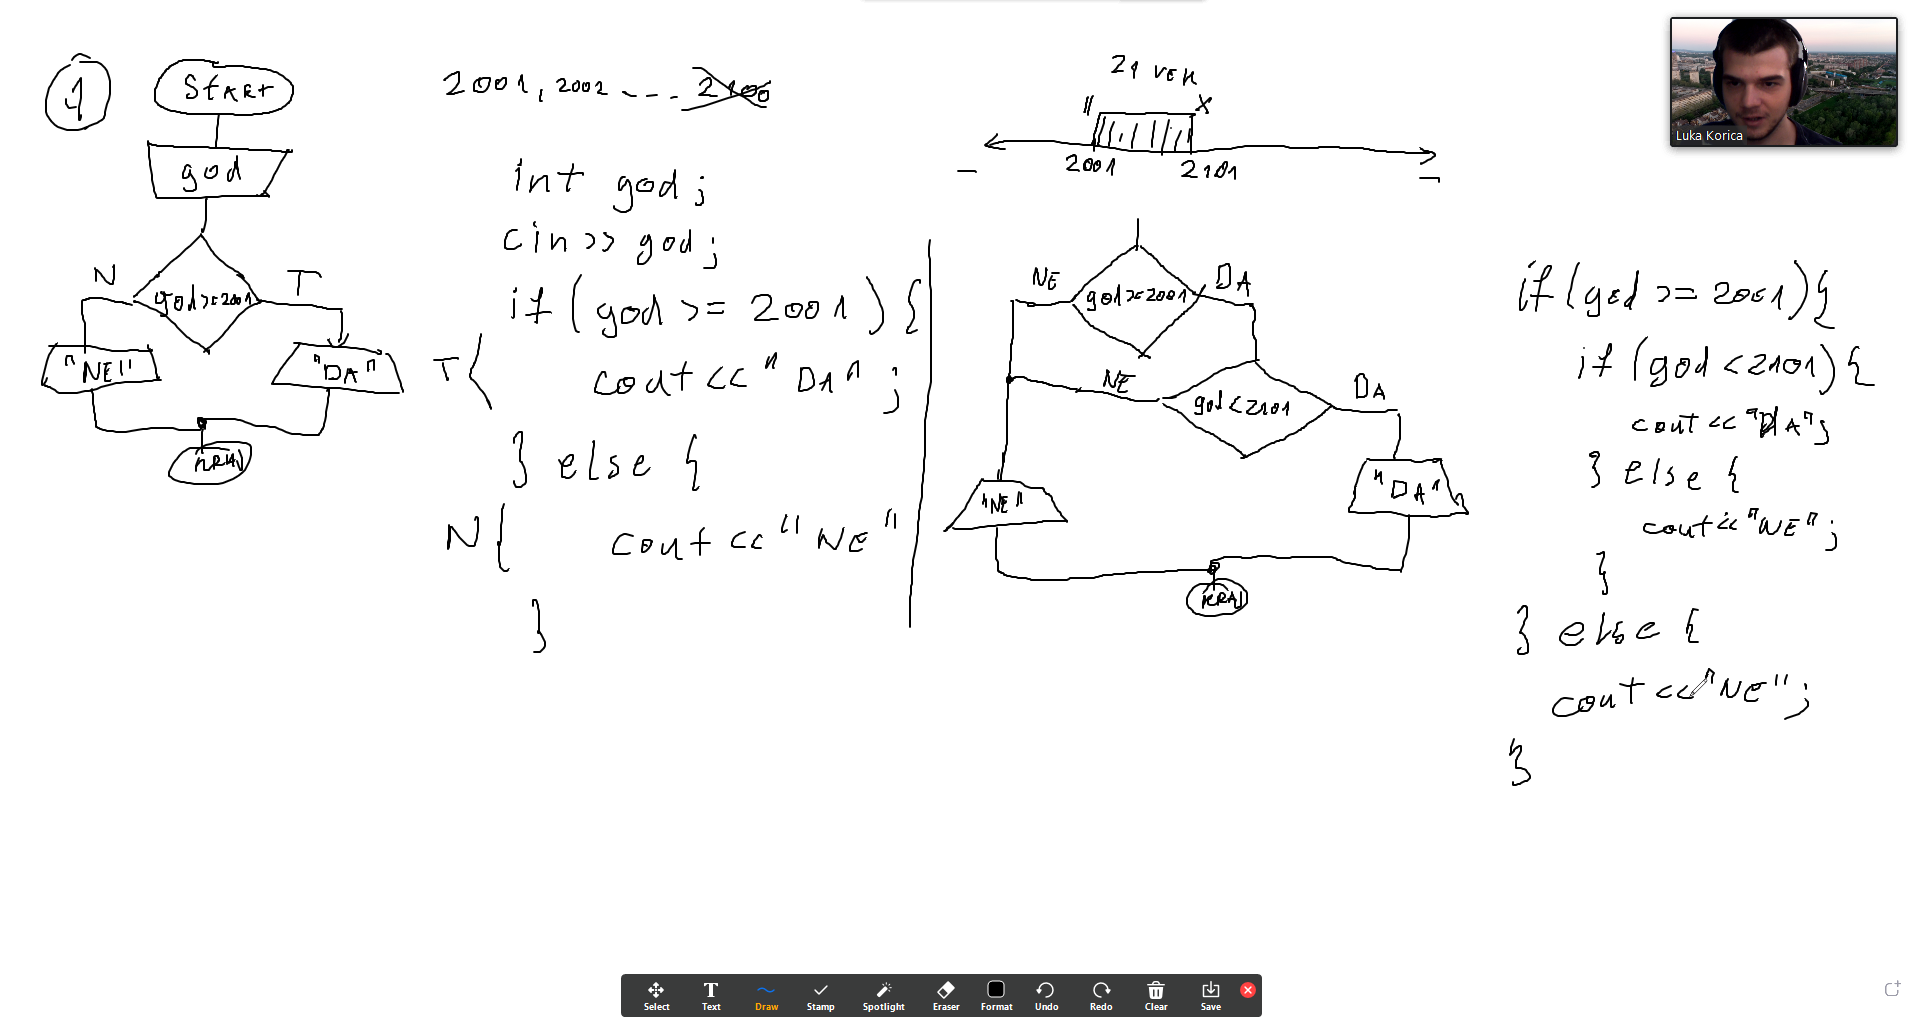 1
START
god
god>=2001
N
T
"NE"
"DA"
KRAJ
2001, 2002 ---. 2100
int god;
cin>> god;
if (god >= 2001) {
T { cout << "DA";
} else {
N { cout << "NE"
}
21 VEK
2001 2101
god>=2001
NE
DA
god<2101
NE
DA
"NE"
"DA"
KRAJ
if (god >= 2001) {
if (god < 2101) {
cout << "DA";
} else {
cout << "NE";
}
} else {
cout << "NE";
}
Luka Korica
Select Text Draw Stamp Spotlight Eraser Format Undo Redo Clear Save